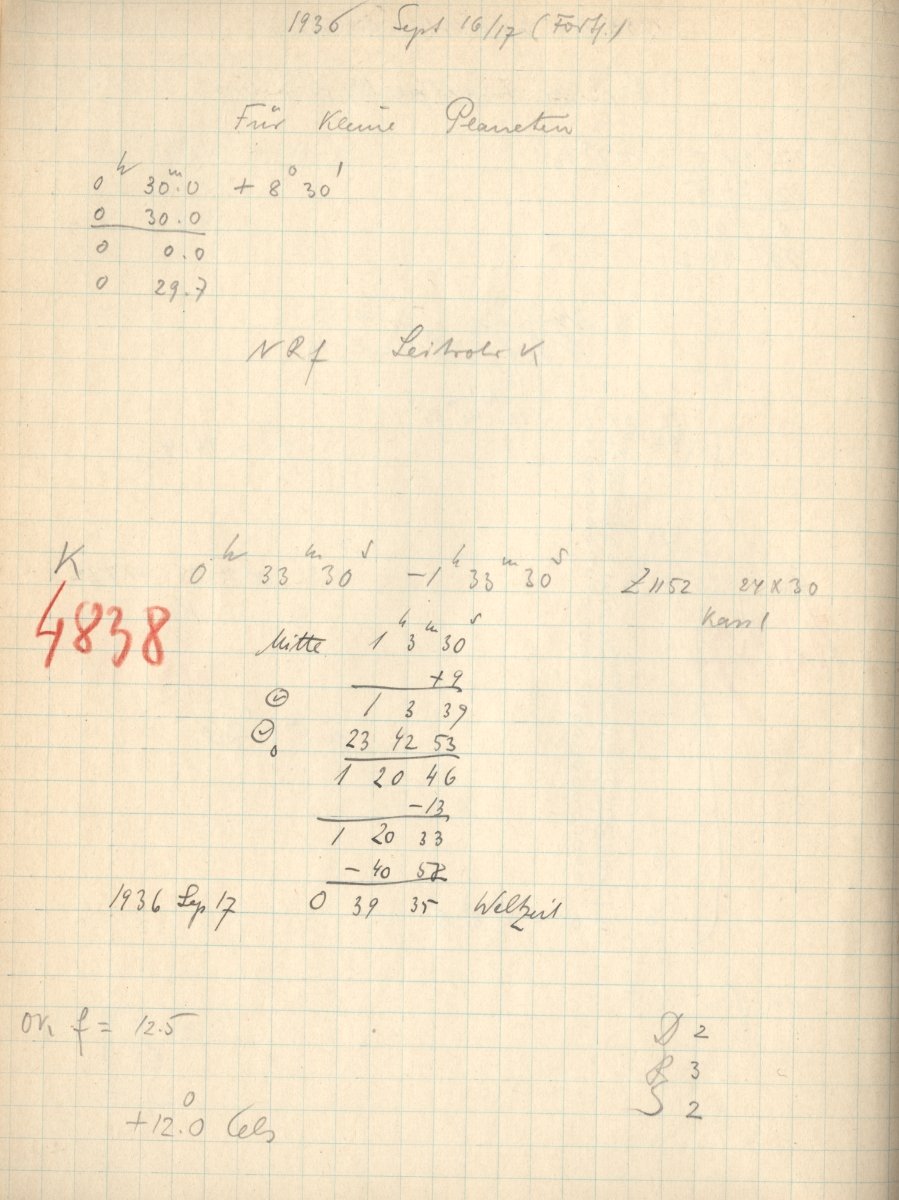 1936 Sept 16/17 (Forts.)
Für Kleine Planeten
0ʰ 30ᵐ.0 + 8° 30'
0 30.0
0 0.0
0 29.7
NRf Leitrohr K
K 0ʰ 33ᵐ 30ˢ –1ʰ 33ᵐ 30ˢ Z1152 24 x 30
4838 Kass 1
Mitte 1ʰ 3ᵐ 30ˢ
+9
1 3 39
23 42 53
1 20 46
–13
1 20 33
– 40 58
1936 Sep 17 0 39 35 Weltzeit
OK f = 12.5 D 2
R 3
S 2
+12.0° Cels